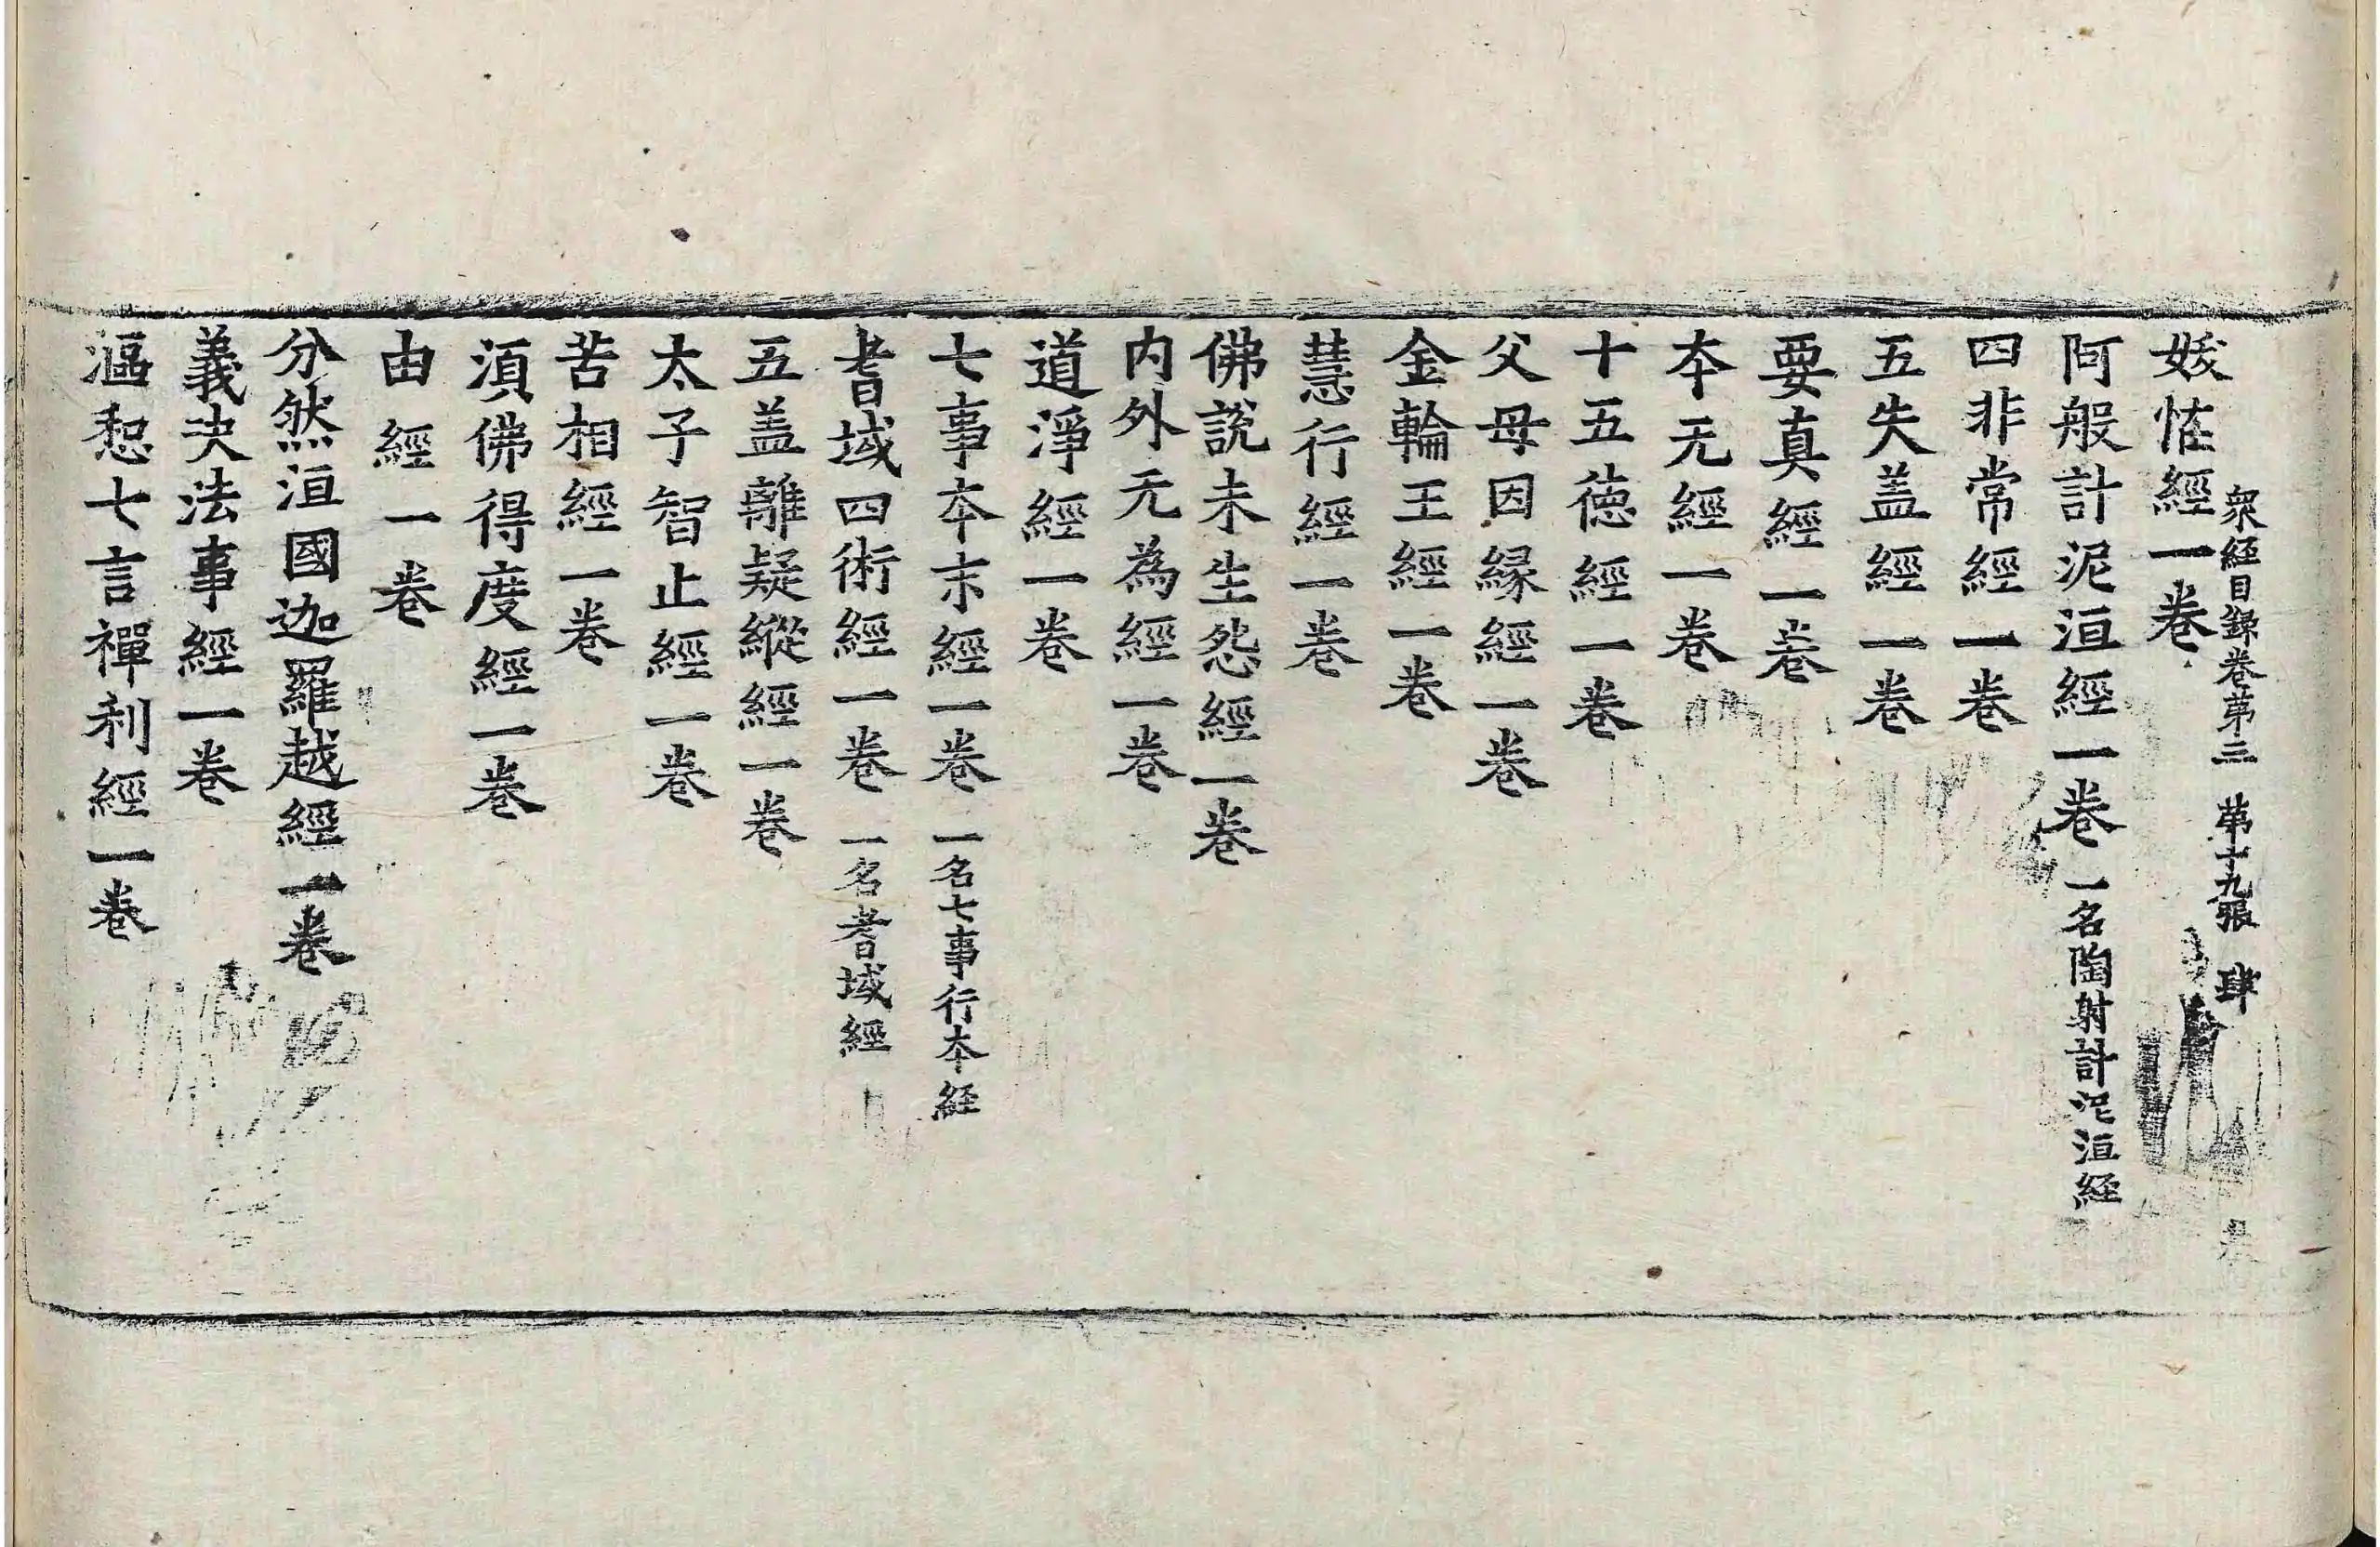 衆經目錄卷第三　第十九張　肆
妭恠經一卷
阿般計泥洹經一卷 一名陶射計泥洹經
四非常經一卷
五失盖經一卷
要真經一卷
本无經一卷
十五德經一卷
父母因縁經一卷
金輪王經一卷
慧行經一卷
佛說未生怨經一卷
内外无為經一卷
道淨經一卷
七事本末經一卷 一名七事行本經
耆域四術經一卷 一名耆域經
五盖離疑縱經一卷
太子智止經一卷
苦相經一卷
湏佛得度經一卷
由經一卷
分然洹國迦羅越經一卷
義決法事經一卷
漚惒七言禪利經一卷